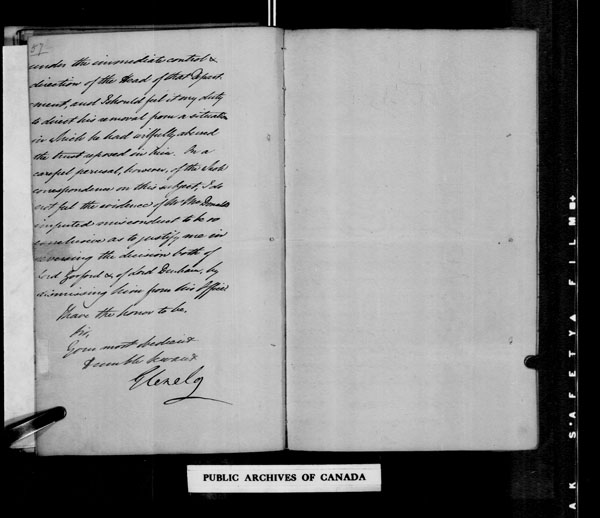 57
under the immediate control &
direction of the Head of that Depart
ment, and I should feel it my duty
to direct his removal from a situation
in which he had wilfully abused
the trust reposed in him. On a
careful perusal, however, of the whole
correspondence on this subject, I do
not feel the evidence of Mr McDonald's
imputed misconduct to be so
conclusive as to justify me in
reversing the decision both of
Lord Gosford & of Lord Durham, by
dismissing him from his Office
I have the honor to be,
Sir,
Your most obedient
Humble Servant
Glenelg
PUBLIC ARCHIVES OF CANADA
AK SAFETY FILM